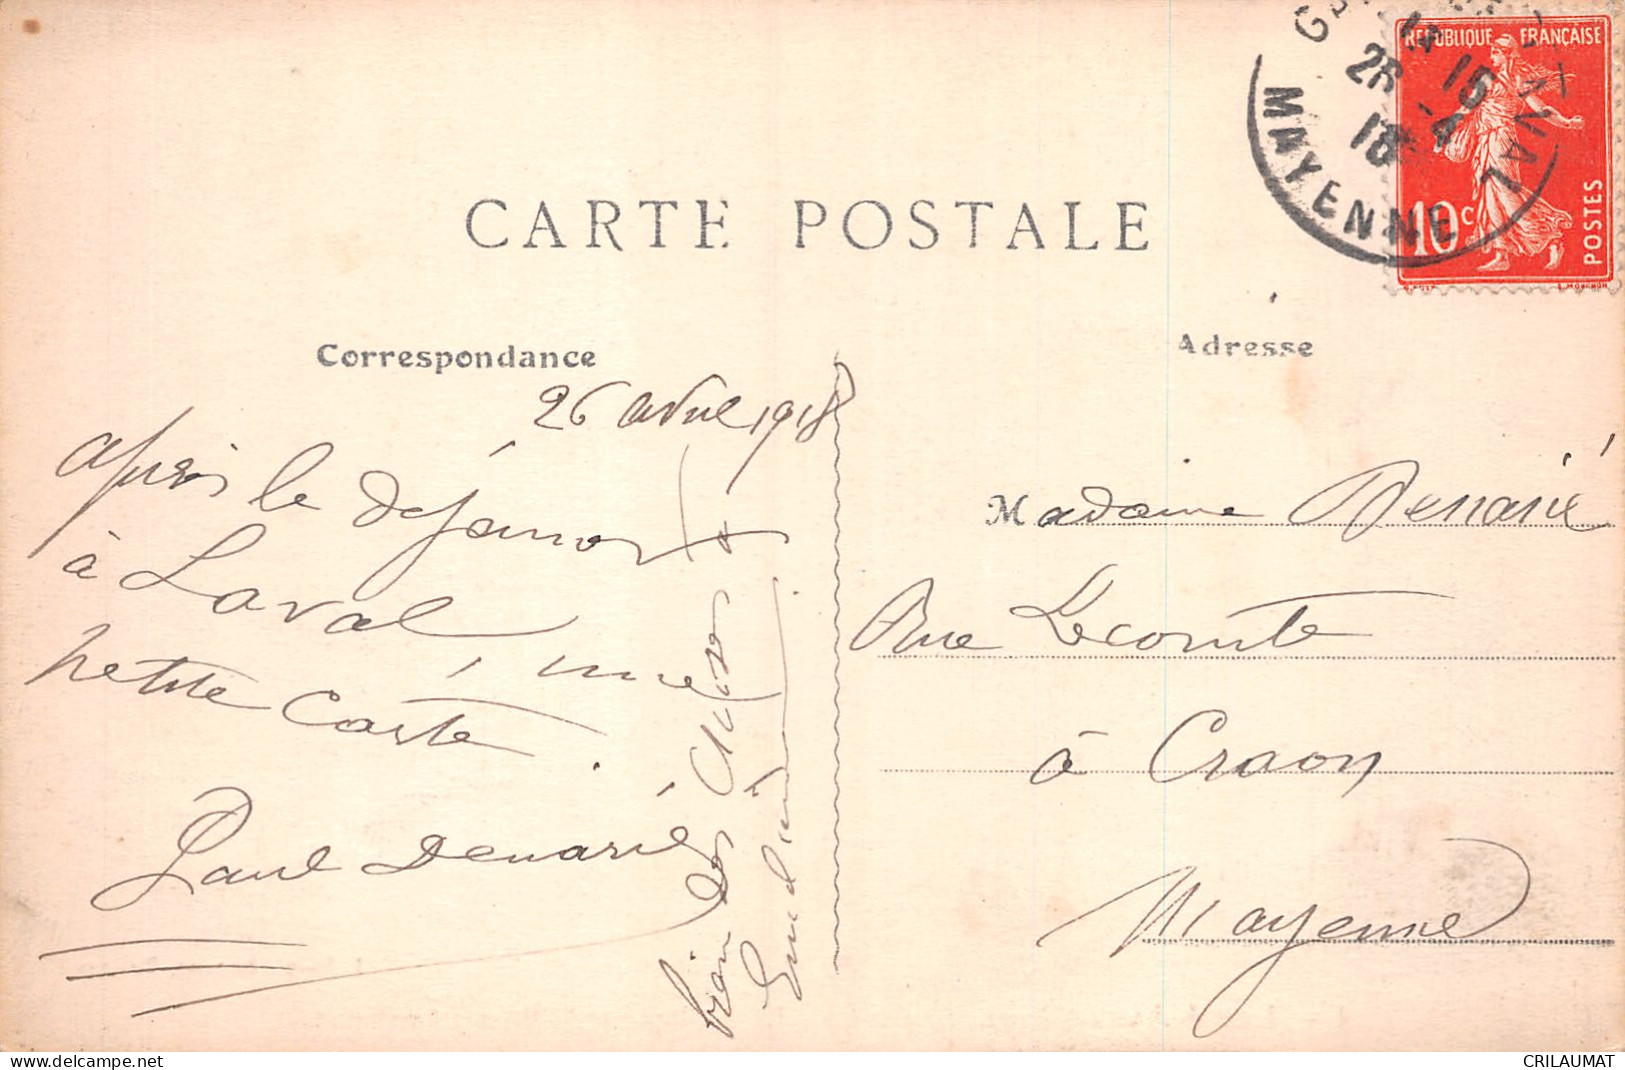 CARTE POSTALE
REPUBLIQUE FRANÇAISE
10c
POSTES
MAYENNE
15
26 -4
18
Correspondance
Adresse
26 avril 1918
après le déjeuner
à Laval, une
petite carte.
Paul Denarié
bien des choses à
Madame Denarié
Rue Lecomte
à Craon
Mayenne
www.delcampe.net
CRILAUMAT